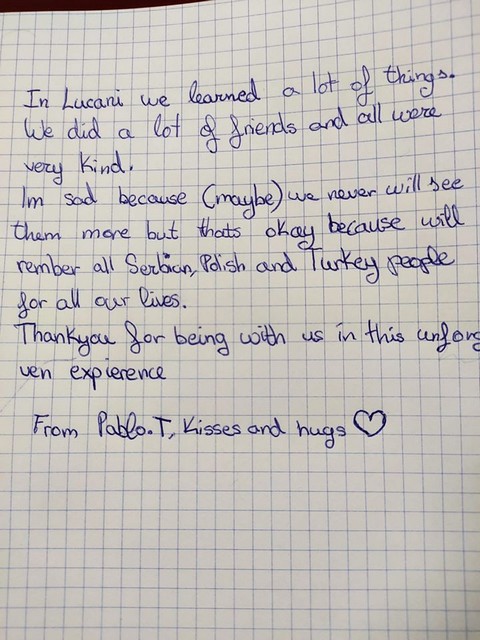 In Lucani we learned a lot of things.
We did a lot of friends and all were
very kind.
Im sad because (maybe) we never will see
them more but thats okay because will
rember all Serbian, Polish and Turkey people
for all our lives.
Thankyou for being with us in this unforg
ven expierence
From Pablo.T, Kisses and hugs ♡